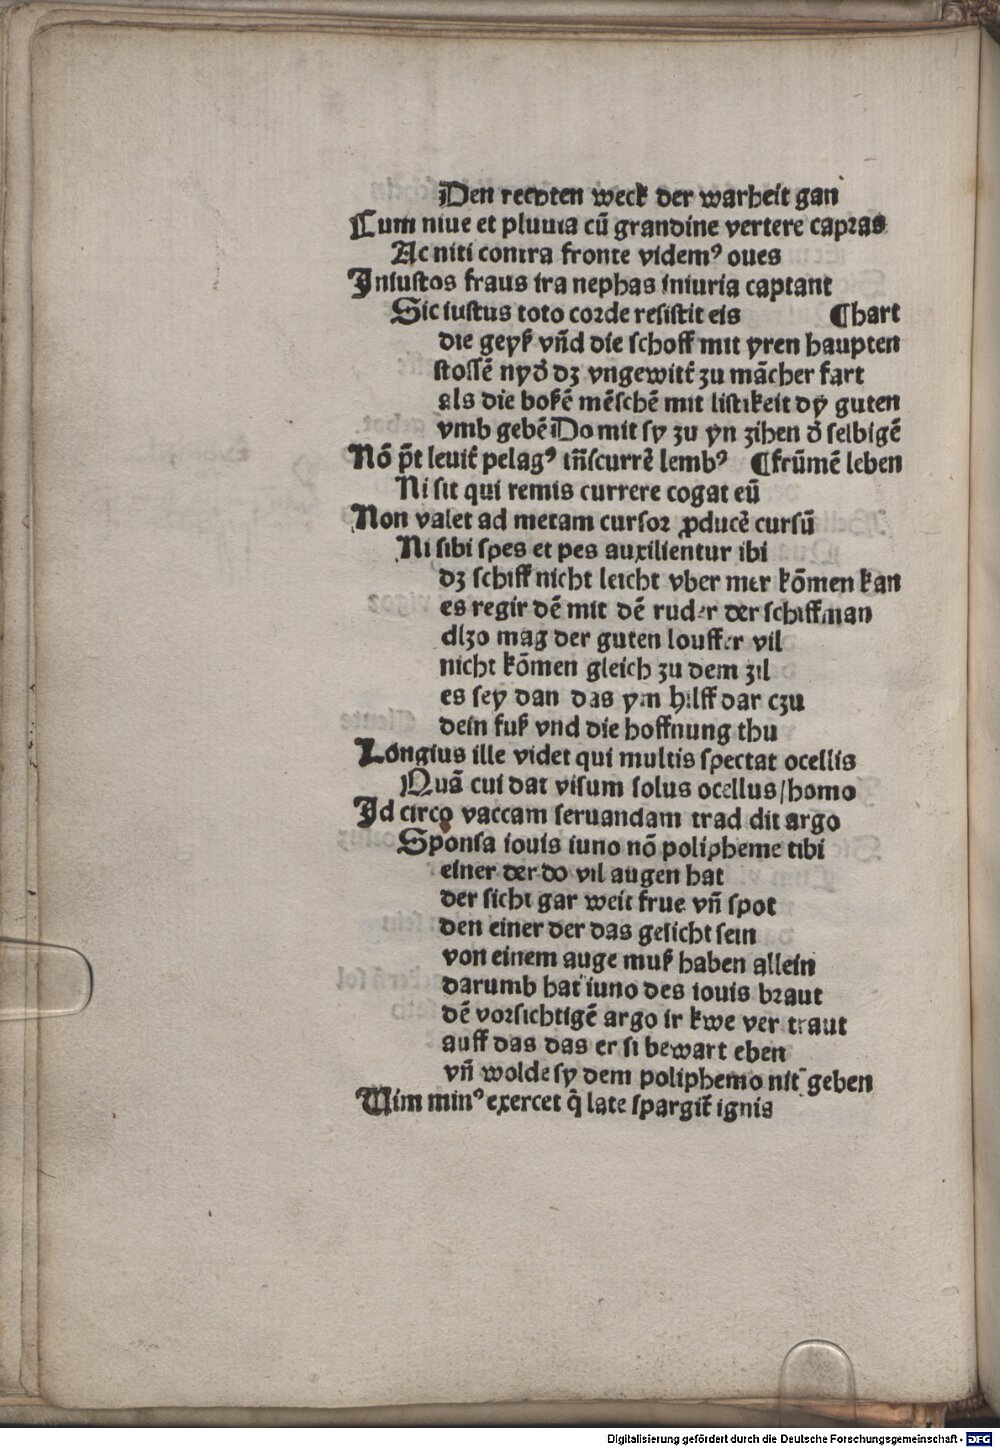 Den rechten weck der warheit gan
Cum niue et pluuia cū grandine vertere capras
Ac niti contra fronte videmꝰ oues
Iniustos fraus ira nephas iniuria captant
Sic iustus toto corde resistit eis ¶hart
die geyß vn̄d die schoff mit yren haupten
stossē nyd̓ dz vngewitt̓ zu mācher fart
als die boßē mēschē mit listikeit dÿ guten
vmb gebē Do mit sy zu yn zihen d̓ selbigē
Nō pt̄ leuit̓ pelagꝰ īn̄scurrē lembꝰ ¶frūmē leben
Ni sit qui remis currere cogat eū
Non valet ad metam cursor ꝓducē cursū
Ni sibi spes et pes auxilientur ibi
dz schiff nicht leicht vber mer kōmen kan
es regir dē mit dē ruder der schiffman
alzo mag der guten louffer vil
nicht kōmen gleich zu dem zil
es sey dan das ym hilff dar czu
dein fuß vnd die hoffnung thu
Longius ille videt qui multis spectat ocellis
Quā cui dat visum solus ocellus/homo
Id circo vaccam seruandam trad dit argo
Sponsa iouis iuno nō polipheme tibi
einer der do vil augen hat
der sicht gar weit frue vn̄ spot
den einer der das gesicht sein
von einem auge muß haben allein
darumb hat iuno des iouis braut
dē vorsichtigē argo ir kwe ver traut
auff das das er si bewart eben
vn̄ wolde sy dem poliphemo nit geben
Vim minꝰ exercet q̄ late spargit̓ ignis
Digitalisierung gefördert durch die Deutsche Forschungsgemeinschaft - DFG